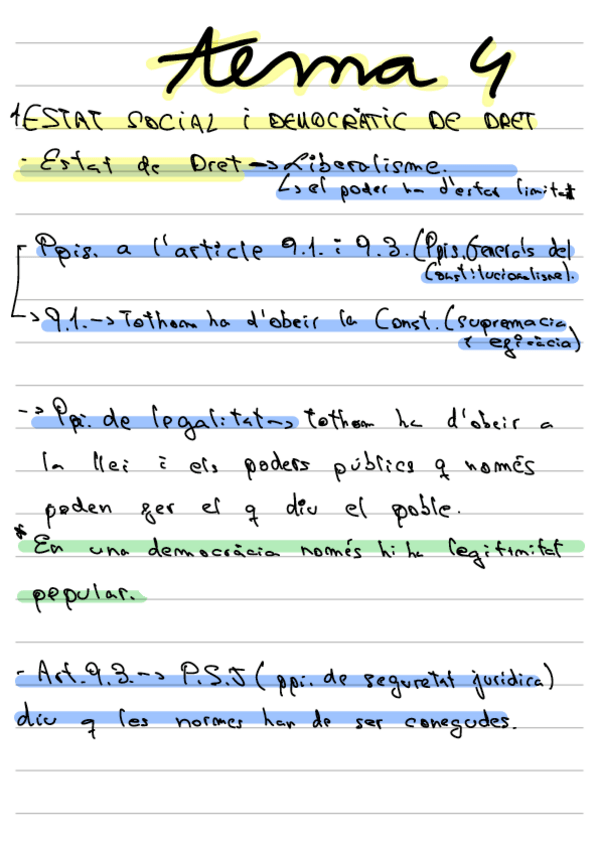 tema 4
1ESTAT SOCIAL i DEMOCRÀTIC DE DRET
- Estat de Dret -> Liberalisme.
L> el poder ha d'estar limitat
Ppis. a l'article 9.1. i 9.3. (Ppis. Generals del
Constitucionalisme).
-> 9.1. -> Tothom ha d'obeir la Const. (supremacia
i eficàcia)
-> Ppi. de legalitat -> tothom ha d'obeir a
la llei i els poders públics q només
poden fer el q diu el poble.
* En una democràcia només hi ha legitimitat
popular.
- Art. 9.3. -> P.S.J (ppi. de seguretat jurídica)
diu q les normes han de ser conegudes.